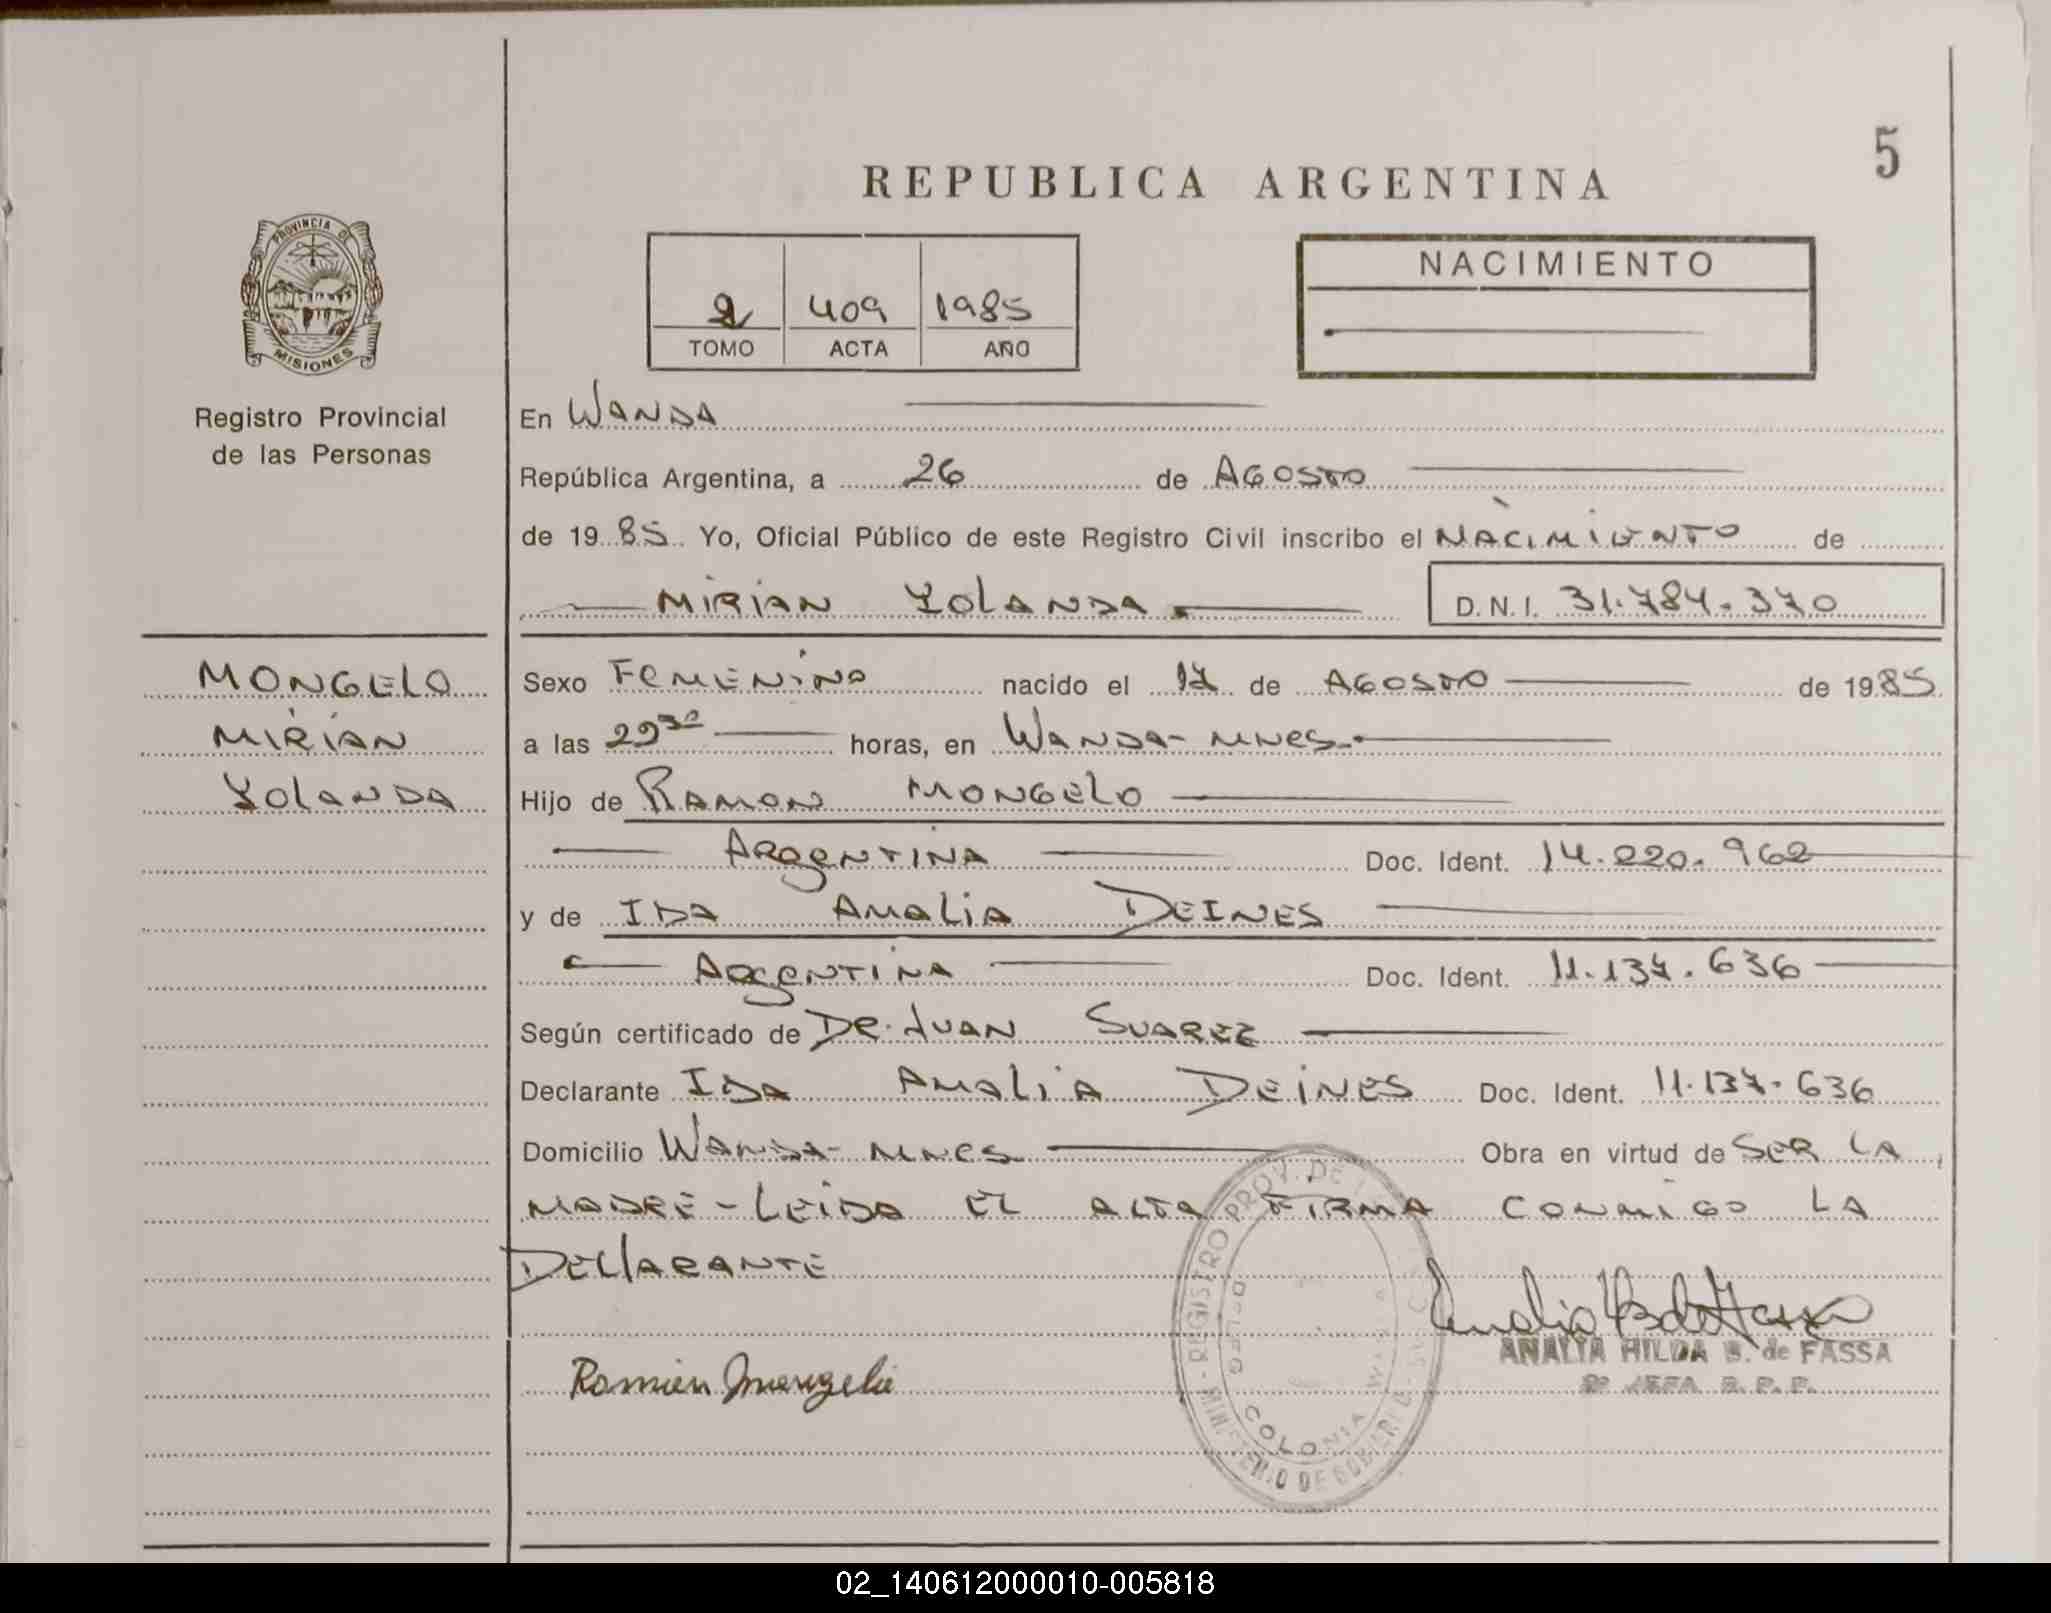 5
REPUBLICA ARGENTINA
PROVINCIA DE
MISIONES
Registro Provincial
de las Personas
2 409 1985
TOMO ACTA AÑO
NACIMIENTO
En WANDA
República Argentina, a 26 de AGOSTO
de 1985 Yo, Oficial Público de este Registro Civil inscribo el NACIMIENTO de
MIRIAN YOLANDA D.N.I. 31.784.370
MONGELO
MIRIAN
YOLANDA
Sexo FEMENINO nacido el 17 de AGOSTO de 1985
a las horas, en WANDA-MNES.
Hijo de RAMON MONGELO
ARGENTINA Doc. Ident. 14.220.962
y de IDA AMALIA DEINES
ARGENTINA Doc. Ident. 11.137.636
Según certificado de DR. JUAN SUAREZ
Declarante IDA AMALIA DEINES Doc. Ident. 11.137.636
Domicilio WANDA-MNES Obra en virtud de SER LA
MADRE-LEIDA EL ACTA FIRMA CONMIGO LA
DECLARANTE
REGISTRO PROV. DE
COLONIA WANDA
ANALIA HILDA B. de FASSA
JEFA R. P. P.
02_140612000010-005818